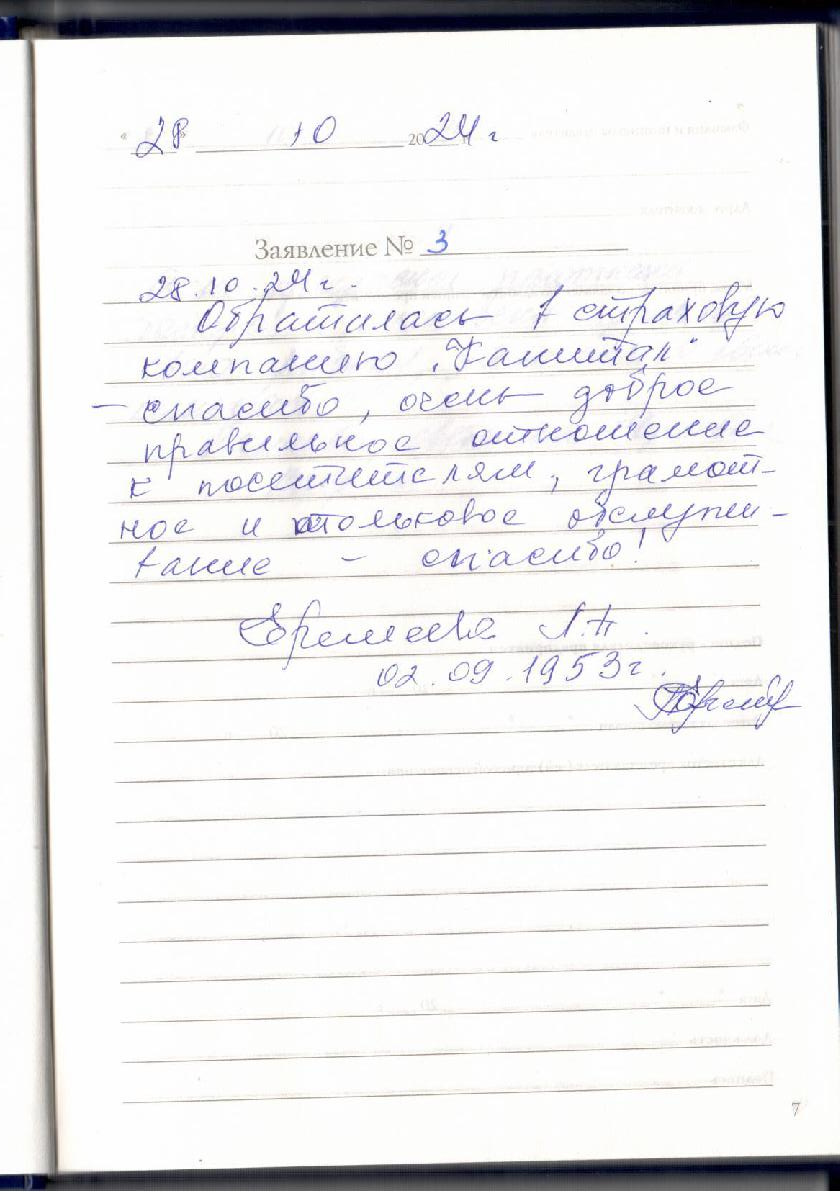 « 28 » 10 2024 г
Заявление № 3
28.10.24 г.
Обратилась в страховую
компанию "Капитал"
– спасибо, очень доброе
правильное отношение
к посетителям, грамот-
ное и толковое обслужи-
вание – спасибо!
Еремеева Л.П.
02.09.1953 г.
7